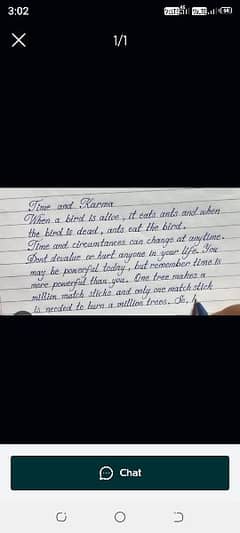 3:02
1/1
Time and Karma
When a bird is alive, it eats ants and when
the bird is dead, ants eat the bird.
Time and circumtances can change at anytime.
Dont devalue or hurt anyone in your life. You
may be powerful today, but remember time is
more powerful than you. One tree makes a
million match sticks and only one match stick
is needed to burn a million trees. So,
Chat